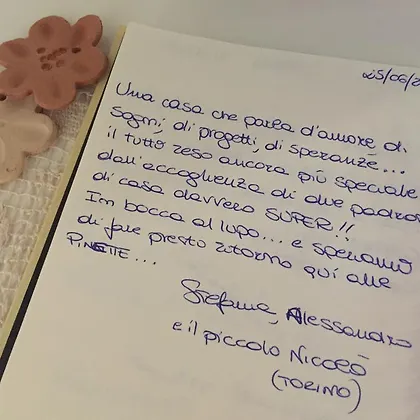 25/06/2
Una casa che parla d'amore di
sogni, di progetti, di speranze...
il tutto reso ancora più speciale
dall'accoglienza di due padron
di casa davvero SUPER!!
In bocca al lupo... e speriamo
di fare presto ritorno qui alle
PINETTE...
Stefania, Alessandro
e il piccolo Nicolò
(TORINO)